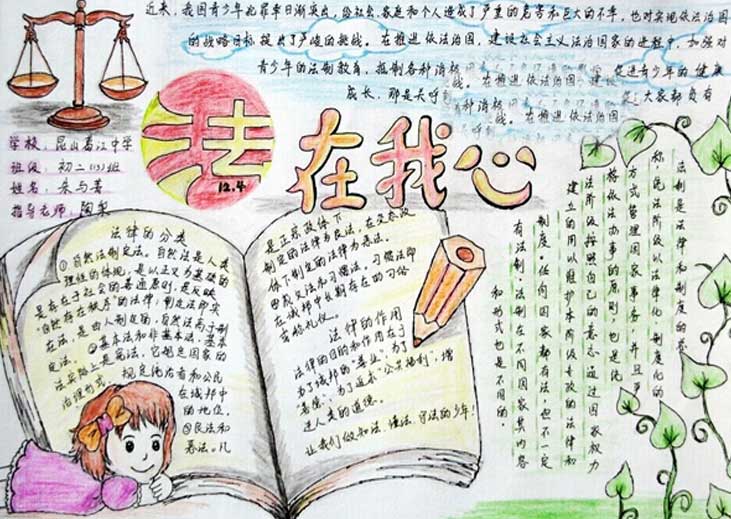 近来，我国青少年犯罪率日渐突出，给社会、家庭和个人造成了严重的危害和巨大的不幸，也对实现依法治国
的战略目标提出了严峻的挑战。在推进依法治国，建设社会主义法治国家的进程中，加强对
青少年的法制教育，抵制各种消极
促进青少年的健康
成长，那是关乎
大家都负有
在推进依法治国，建设
在推进依法治国
学校：昆山葛江中学
班级：初二(13)班
姓名：
指导老师：陶
法在我心
12.4
法律的分类
①自然法制定法。自然法是人类
理性的体现，是以正义为基础的
是存在于社会的普遍原则，是反映
"自然存在秩序"的法律；制定法即实
在法，是由人制定的，自然法高于制
定法。②基本法和非基本法：基本
法实际上是宪法，它规定国家的
治理方式，规定统治者和公民
在城邦中
的地位。
③良法和
恶法。凡
是正宗政体下
制定的法律为良法，在变态政
体下制定的法律为恶法。
成文法和习惯法。习惯法即
在城邦中长期存在的习俗
或者礼仪。
法律的作用
法律的目的和作用在于
为了城邦的"善业"，为了
"善德"，为了追求"公共福利"，增
进人类的道德。
让我们做知法、懂法、守法的少年！
法制是法律和制度的总
称，统治阶级以法律化、制度化的
方式管理国家事务，并且严
格依法办事的原则，也是统
治阶级按照自己的意志通过国家权力
建立的用以维护本阶级专政的法律和
制度。任何国家都有法，也不一定
有法制；法制在不同国家其内容
和形式也是不同的。